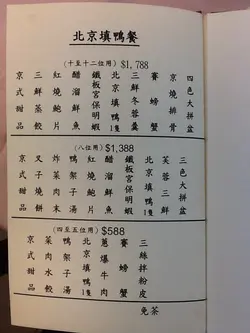 北京填鴨餐
(十至十二位用) $1,788
四色大拼盆
京燒排骨
賽螃蟹
三鮮冬蓉羹
北京填鴨1隻
鐵板宮保明蝦
醋溜鮮魚
紅燒鮑片
三鮮蒸餃
京式甜品
(八位用) $1,388
三色大拼盆
芙蓉三鮮
賽螃蟹
北京填鴨1隻
鐵板宮保明蝦
醋溜鮮魚
紅燒鮑片
鴨架子湯
炸菜肉末
叉子燒餅
京式甜品
(四至五位用) $588
三絲拌粉皮
賽螃蟹
蔥爆牛肉
北京填鴨1隻
鴨架子湯
菜肉水餃
京式甜品
免茶